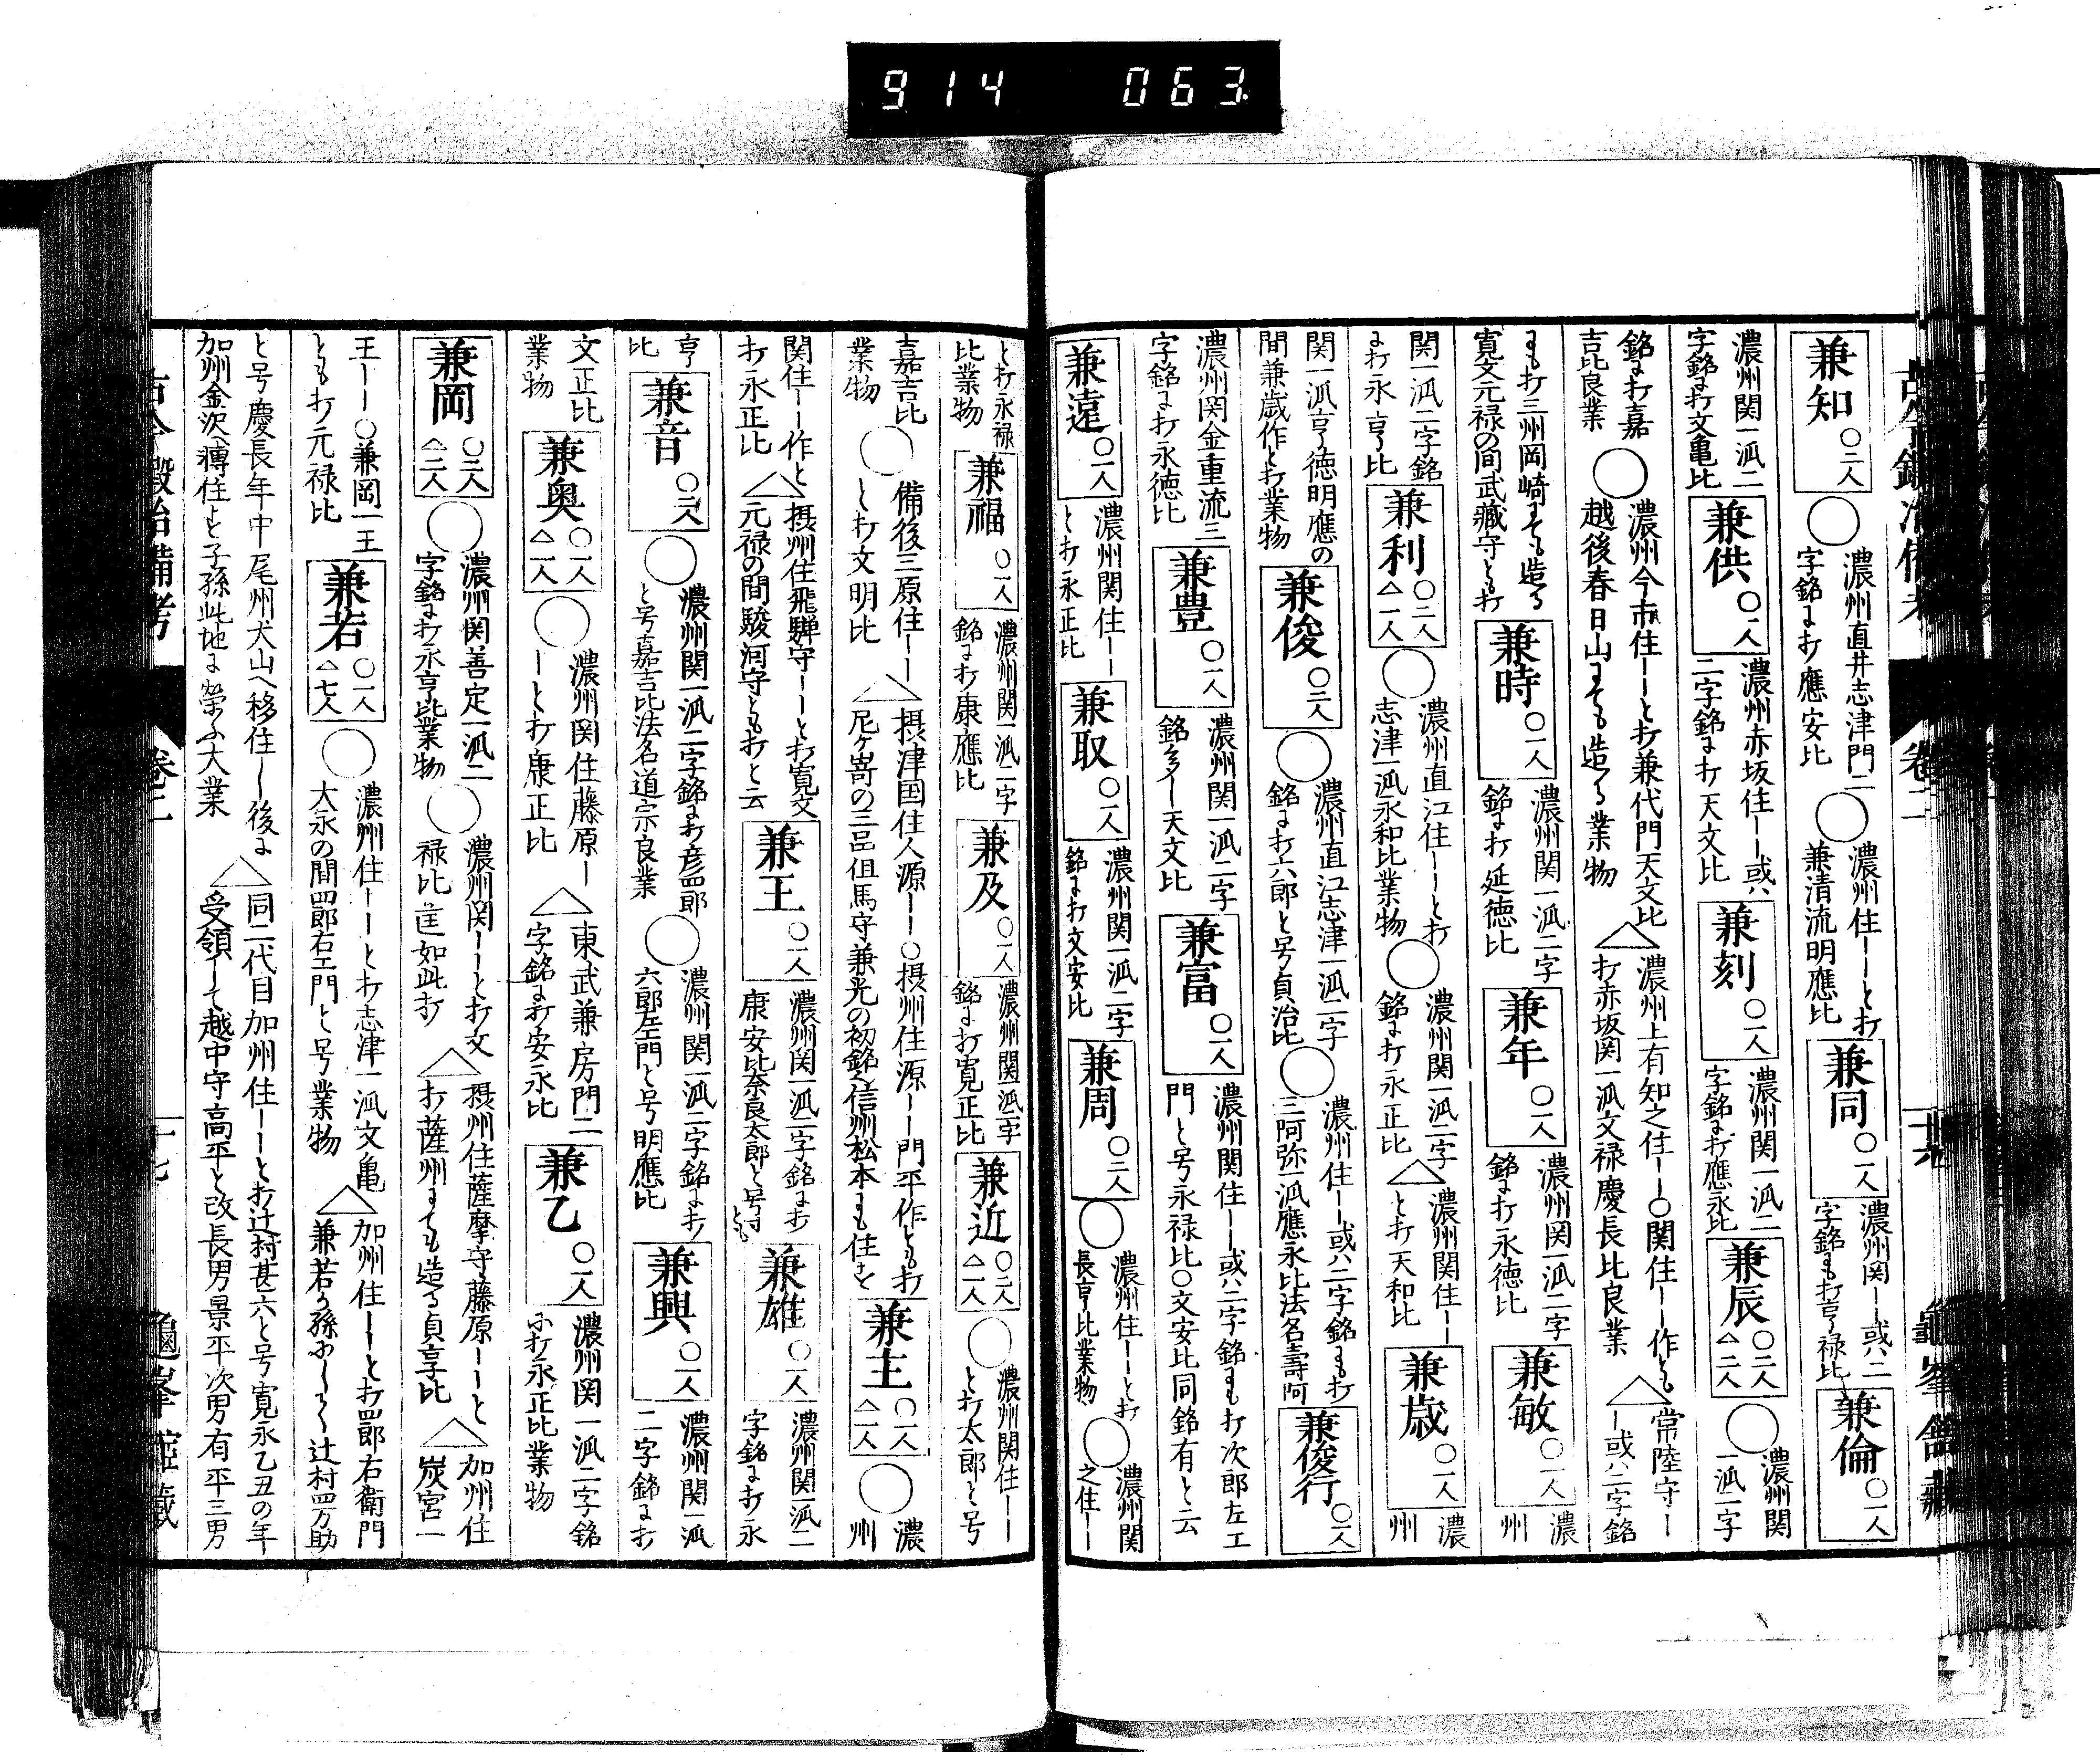 914 063
兼知 〇二人
〇 濃州直井志津門二
字銘ニ打應安比
〇 濃州住ーーと打
兼清流明應比
兼同 〇一人
濃州関ー或ハ二
字銘も打享禄比
兼倫 〇一人
濃州関一派二
字銘ニ打文亀比
兼供 〇一人
濃州赤坂住ーー或ハ
二字銘ニ打天文比
兼刻 〇一人
濃州関一派二
字銘ニ打應永比
兼辰 〇二人 △二人
〇 濃州関
一派二字
銘ニ打嘉
吉比良業
〇 濃州今市住ーーと打兼代門天文比
越後春日山ニても造る業物
△ 濃州上有知之住ー〇関住ー作とも
打赤坂関一派文禄慶長比良業
△ 常陸守ー
ー或ハ二字銘
ニも打三州岡崎ニても造る
寛文元禄の间武蔵守とも打
兼時 〇一人
濃州関一派二字
銘ニ打延徳比
兼年 〇一人
濃州関一派二字
銘ニ打永徳比
兼敏 〇一人
濃
州
関一派二字銘
ニ打永享比
兼利 〇二人 △一人
〇 濃州直江住ーーと打
志津一派永和比業物
〇 濃州関一派二字
銘ニ打永正比
△ 濃州関住ーー
と打天和比
兼歳 〇一人
濃
州
関一派享徳明應の
間兼歳作と打業物
兼俊 〇三人
〇 濃州直江志津一派二字
銘ニ打六郎と号貞治比
〇 濃州住ーー或ハ二字銘ニも打
三阿弥派應永比法名壽阿
兼俊行 〇一人
濃州関金重流三
字銘ニ打永徳比
兼豊 〇一人
濃州関一派二字
銘多ー天文比
兼富 〇一人
濃州関住ーー或ハ二字銘ニも打次郎左エ
門と号永禄比〇文安比同銘有と云
兼遠 〇一人
濃州関住ーー
と打永正比
兼取 〇一人
濃州関一派二字
銘ニ打文安比
兼周 〇二人
〇 濃州住ーーと打
長享比業物
〇 濃州関
之住ー
と打永禄
比業物
兼福 〇一人
濃州関一派二字
銘ニ打康應比
兼及 〇一人
濃州関一派二字
銘ニ打寛正比
兼近 〇二人 △一人
〇 濃州関住ーー
と打太郎と号
嘉吉比
業物
〇 備後三原住ーー
と打文明比
△ 摂津国住人源ーー〇摂州住源ーー門平作とも打
尼ヶ嵜の三品但馬守兼光の初銘信州松本ニも住す
兼主 〇一人 △一人
〇 濃
州
関住ーー作と
打永正比
△ 摂州住飛騨守ーーと打寛文
元禄の間駿河守とも打と云
兼王 〇一人
濃州関一派二字銘ニ打
康安比奈良太郎と号すとも
兼雄 〇一人
濃州関一派二
字銘ニ打永
享
比
兼音 〇二人
〇 濃州関一派二字銘ニ打彦四郎
と号嘉吉比法名道宗良業
〇 濃州関一派二字銘ニ打
六郎左門と号明應比
兼興 〇一人
濃州関一派
二字銘ニ打
文正比
業物
兼奥 〇一人 △一人
〇 濃州関住藤原ー
ーと打康正比
△ 東武兼房門二
字銘ニ打安永比
兼乙 〇一人
濃州関一派二字銘
ニ打永正比業物
兼岡 〇二人 △三人
〇 濃州関善定一派二
字銘ニ打永享比業物
〇 濃州関ーーと打文
禄比 如此打
△ 摂州住薩摩守藤原ーーと
打薩州ニても造る貞享比
△ 加州住
炭宮一
王ーー〇兼岡一王
とも打元禄比
兼若 〇一人 △七人
〇 濃州住ーーと打志津一派文亀
大永の間四郎右エ門と号業物
△ 加州住ーーと打四郎右衛門
兼若の孫 辻村四方助
と号慶長年中尾州犬山へ移住ー後ニ
加州金沢ニ轉住と子孫此地ニ榮ふ大業
△ 同二代目加州住ーーと打辻村甚六と号寛永乙丑の年
受領ーて越中守高平と改長男景平次男有平三男